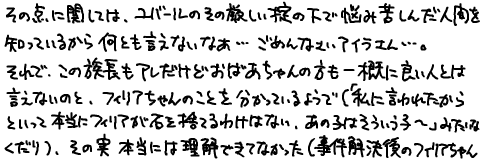 その点に関しては、ユバールのその厳しい掟の下で悩み苦しんだ人間を
知っているから何とも言えないなぁ…ごめんなさいアイラさん…。
それで、この族長もアレだけどおばあちゃんの方も一概に良い人とは
言えないのと、フィリアちゃんのことを分かっているようで(「私に言われたから
といって本当にフィリアが石を捨てるわけはない、あの子はそういう子〜」みたいな
くだり)、その実本当には理解できてなかった(事件解決後のフィリアちゃん